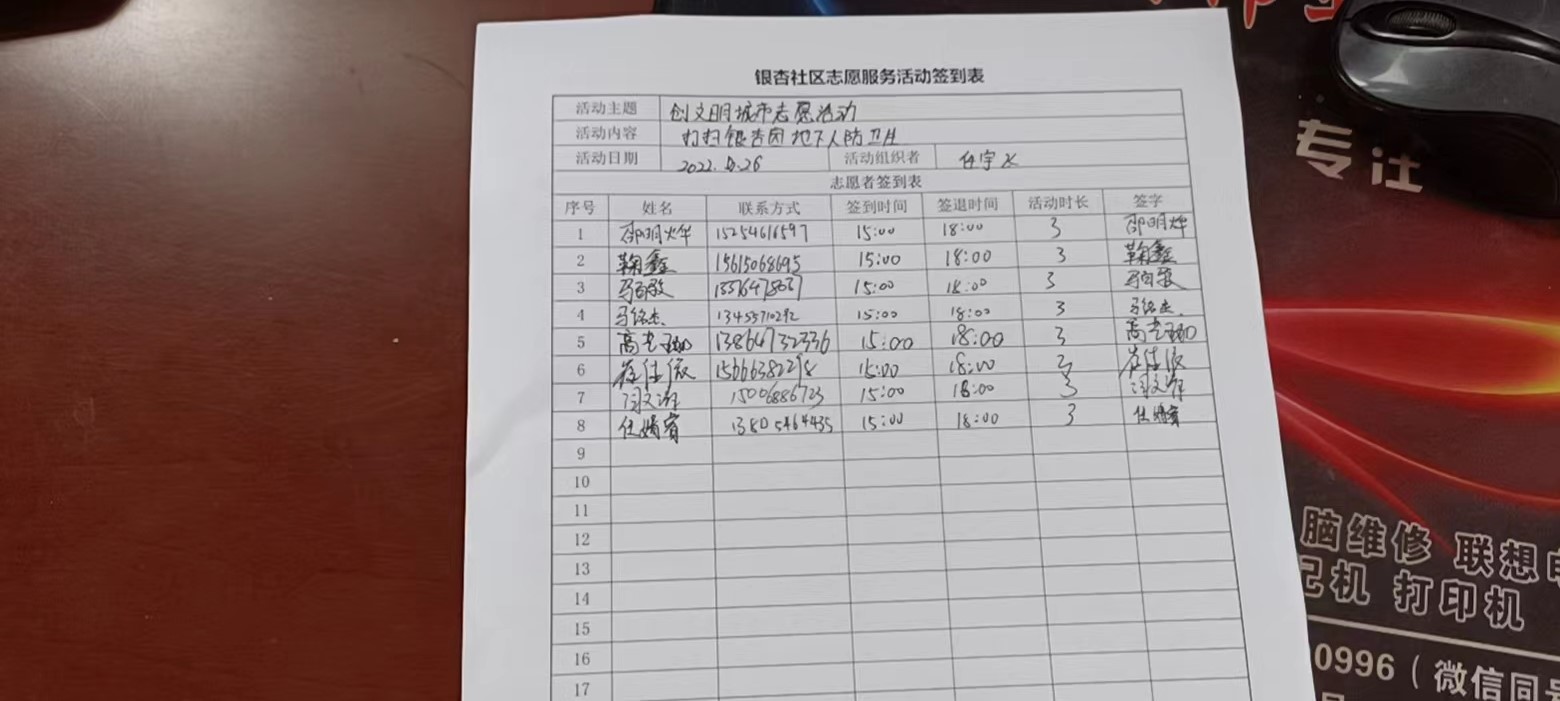 银杏社区志愿服务活动签到表
活动主题 创文明城市志愿活动
活动内容 打扫银杏园地下人防卫生
活动日期 2022.4.26 活动组织者
志愿者签到表
序号 姓名 联系方式 签到时间 签退时间 活动时长 签字
1 邵明烨 15254616597 15:00 18:00 3 邵明烨
2 鞠鑫 15615068695 15:00 18:00 3 鞠鑫
3 15:00 18:00 3
4 马铭杰 13455710292 15:00 18:00 3 马铭杰
5 13864732336 15:00 18:00 3
6 15:00 18:00 3
7 闫文洋 15006886723 15:00 18:00 3 闫文洋
8 任婧睿 13805464435 15:00 18:00 3 任婧睿
9
10
11
12
13
14
15
16
17
专注
脑维修 联想
记机 打印机
0996（微信同号